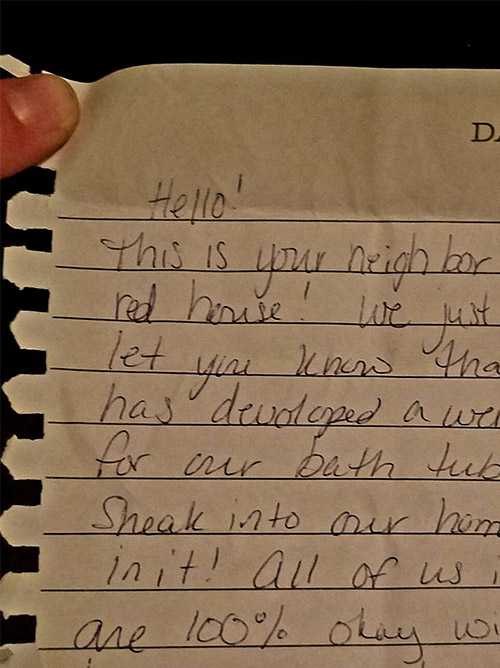 DA
Hello!
This is your neighbor
red house! We just
let you know tha
has devoloped a we
for our bath tub
Sneak into our hom
in it! All of us i
are 100% okay wi